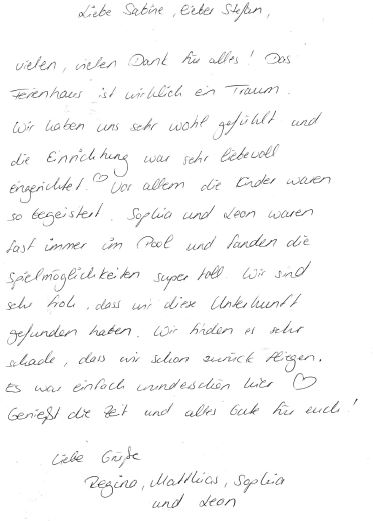 Liebe Sabine, lieber Stefan,
vielen, vielen Dank für alles! Das
Ferienhaus ist wirklich ein Traum.
Wir haben uns sehr wohl gefühlt und
die Einrichtung war sehr liebevoll
eingerichtet. ♡ Vor allem die Kinder waren
so begeistert. Sophia und Leon waren
fast immer im Pool und fanden die
Spielmöglichkeiten super toll. Wir sind
sehr froh, dass wir diese Unterkunft
gefunden haben. Wir finden es sehr
schade, dass wir schon zurück fliegen.
Es war einfach wunderschön hier ♡
Genießt die Zeit und alles Gute für euch!
Liebe Grüße
Regina, Matthias, Sophia
und Leon